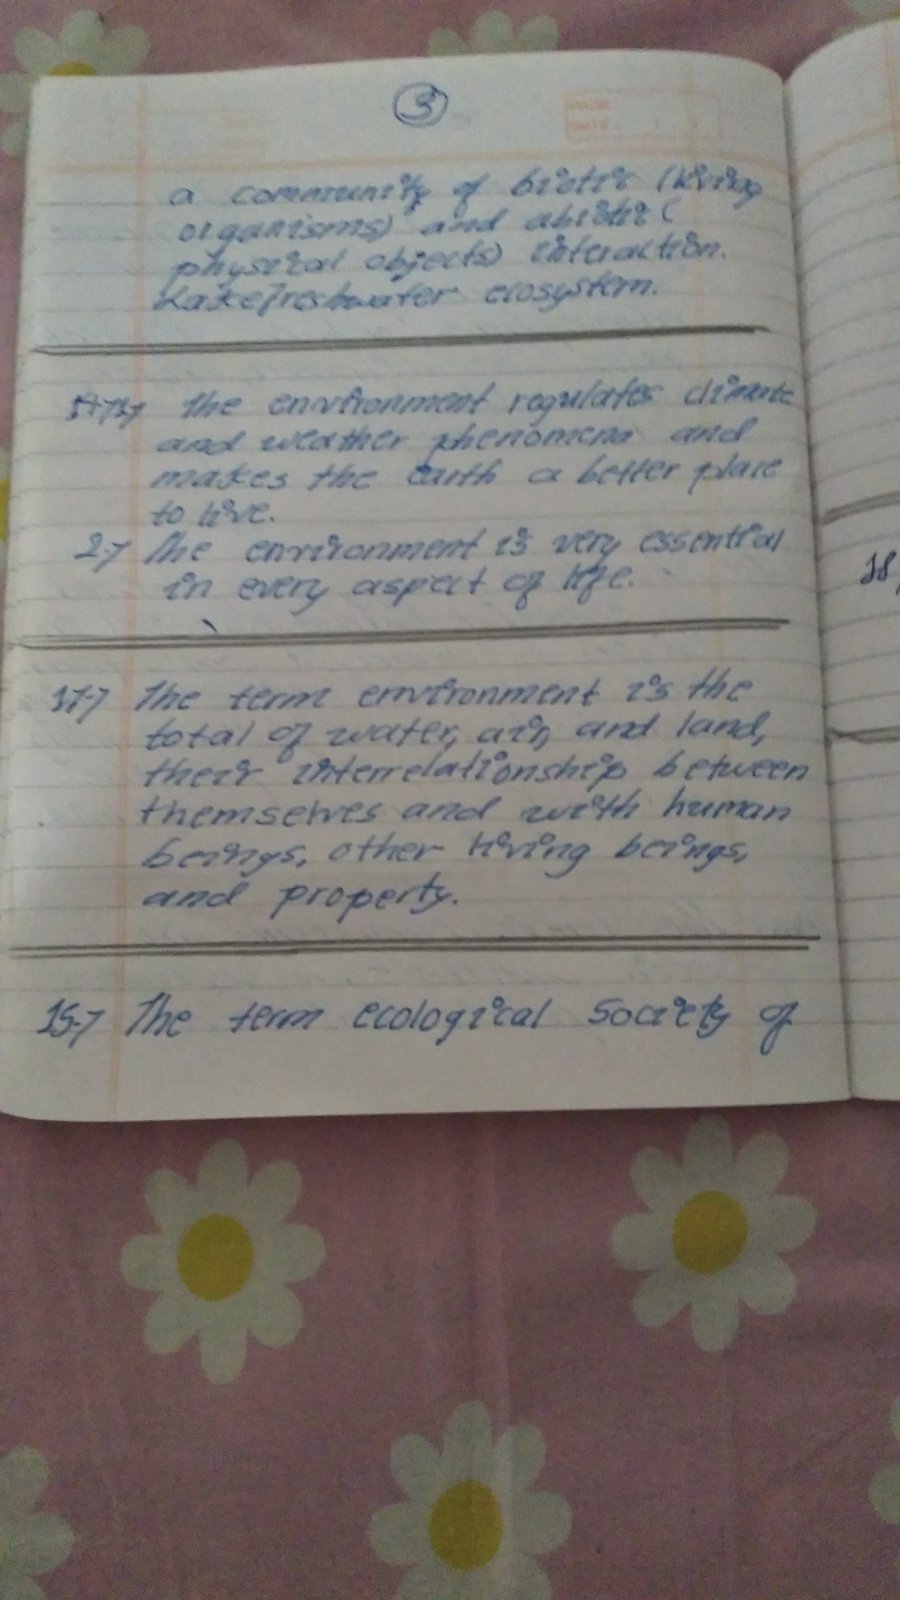 3
a community of biotic (living
organisms) and abiotic (
physical objects) interaction.
Lake/freshwater ecosystem.
The environment regulates climate
and weather phenomena and
makes the earth a better place
to live.
2.→ The environment is very essential
in every aspect of life.
17.→ The term environment is the
total of water, air, and land,
their interrelationship between
themselves and with human
beings, other living beings,
and property.
15.→ The term ecological Society of
18,